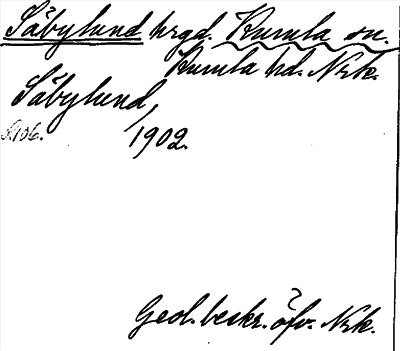 Säbylund hrgd. Kumla sn.
Kumla hd. Nrk.
Säbylund,
S.106. 1902.
Geol. beskr. öfv. Nrk.